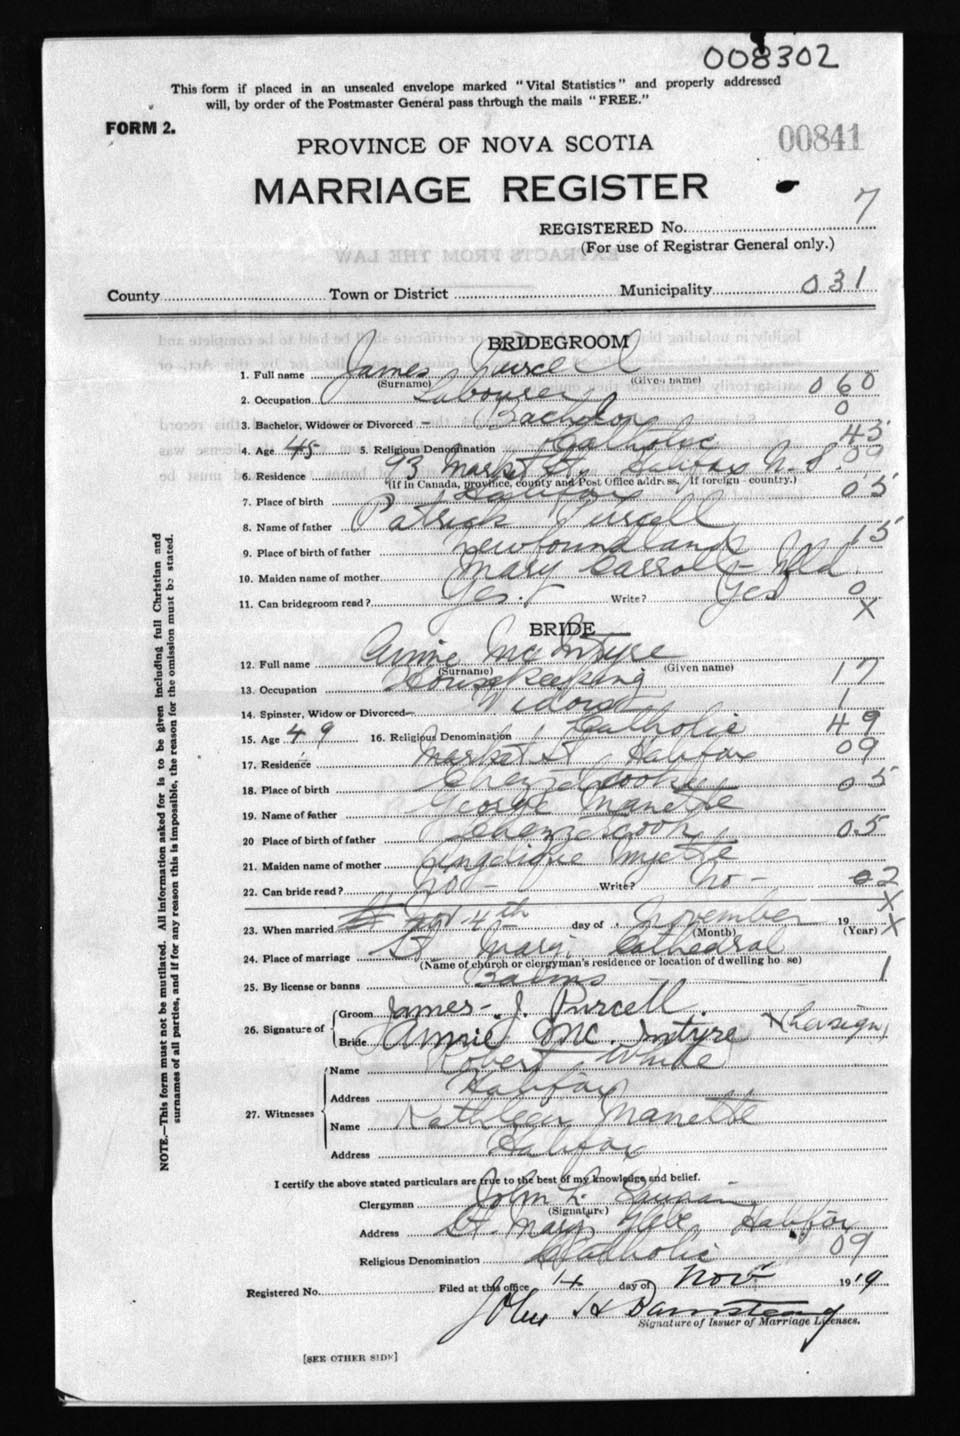 008302
This form if placed in an unsealed envelope marked "Vital Statistics" and properly addressed
will, by order of the Postmaster General pass through the mails "FREE."
FORM 2.
00841
PROVINCE OF NOVA SCOTIA
MARRIAGE REGISTER
REGISTERED No. 7
(For use of Registrar General only.)
County Town or District Municipality 031
BRIDEGROOM
1. Full name James Purcell
(Surname) (Given name)
2. Occupation Labourer 060
3. Bachelor, Widower or Divorced – Bachelor 0
4. Age 45 5. Religious Denomination Catholic 45
6. Residence 93 Market St. Halifax N.S. 09
(If in Canada, province, county and Post Office address. If foreign - country.)
7. Place of birth Halifax 05
8. Name of father Patrick Purcell
9. Place of birth of father Newfoundland 15
10. Maiden name of mother Mary Carroll – Nfld.
11. Can bridegroom read? Yes. Write? Yes 0
X
BRIDE
12. Full name Annie McIntyre
(Surname) (Given name)
13. Occupation Housekeeping 17
14. Spinster, Widow or Divorced Widow 1
15. Age 49 16. Religious Denomination Catholic 49
17. Residence Market St Halifax 09
18. Place of birth Chezzetcook 05
19. Name of father George Manette
20 Place of birth of father Chezzetcook 05
21. Maiden name of mother Angelique
22. Can bride read? No – Write? No – 02
X
23. When married 4th day of November 19 X
(Month) (Year)
24. Place of marriage St. Mary's Cathedral
(Name of church or clergyman's residence or location of dwelling house)
25. By license or banns Banns 1
26. Signature of Groom James. J. Purcell.
Bride Annie Mc. Intyre X (her sign)
27. Witnesses
Name Robert White
Address Halifax
Name Kathleen Manette
Address Halifax
I certify the above stated particulars are true to the best of my knowledge and belief.
Clergyman John L.
(Signature)
Address St. Mary's Glebe, Halifax
Religious Denomination Catholic 09
Registered No. Filed at this office 14 day of Nov 1919
John H Barnstead
Signature of Issuer of Marriage Licenses.
[SEE OTHER SIDE]
NOTE.—This form must not be mutilated. All information asked for is to be given including full Christian and
surnames of all parties, and if for any reason this is impossible, the reason for the omission must be stated.